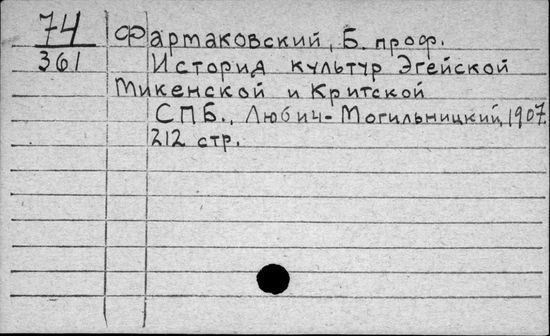 74
361
Фармаковский, Б. проф.
История культур Эгейской
Микенской и Критской
СПБ., Любич-Могильницкий, 1907.
212 стр.